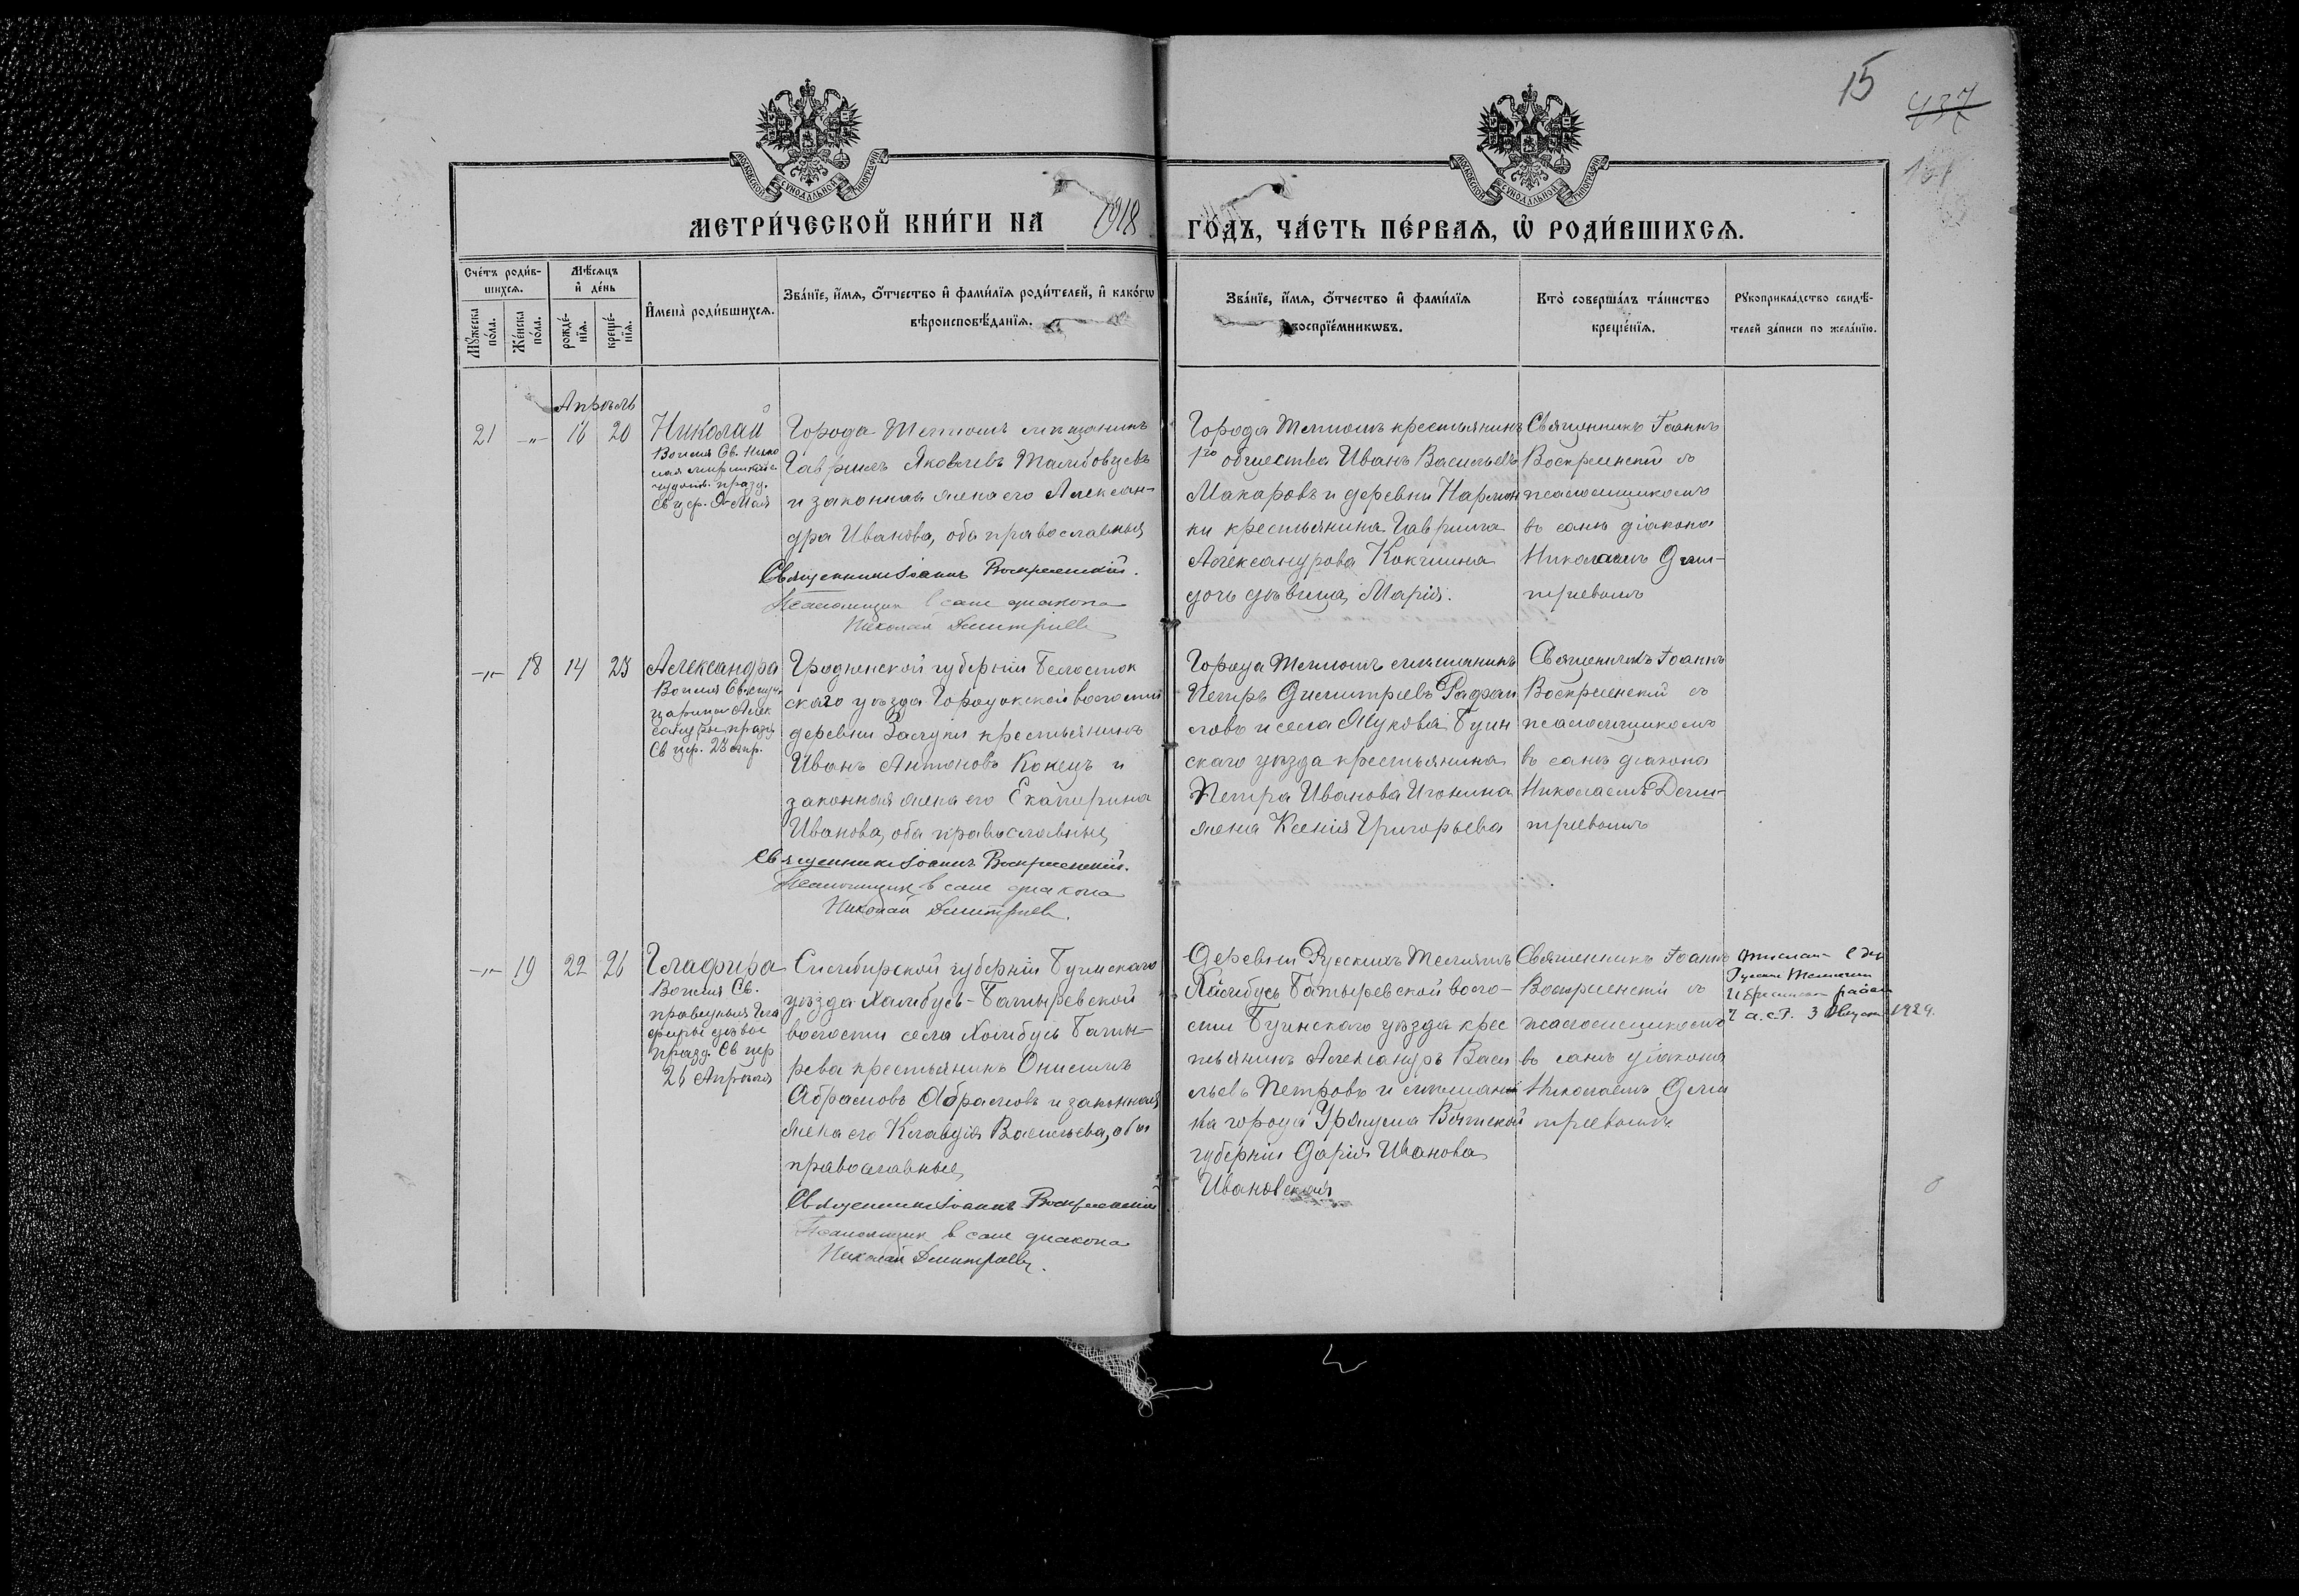 15
437
МОСКОВСКОЙ СѴНОДАЛЬНОЙ ТИПОГРАФІИ
МОСКОВСКОЙ СѴНОДАЛЬНОЙ ТИПОГРАФІИ
МЕТРИ́ЧЕСКОЙ КНИ́ГИ НА 1918 ГО́ДЪ, ЧА́СТЬ ПЕ́РВАѦ, Ѡ҆ РОДИ́ВШИХСѦ.
Сче́тъ роди́в-
шихсѧ.
Мꙋ́жеска по́ла.
Же́нска по́ла.
Мѣ́сѧцъ
и҆ де́нь
рожде́-
нїѧ.
креще́-
нїѧ.
И҆мена̀ роди́вшихсѧ.
Зва́нїе, и҆́мѧ, ѻ҆́тчество и҆ фами́лїѧ роди́телей, и҆ како́гѡ
вѣроисповѣ́данїѧ.
Зва́нїе, и҆́мѧ, ѻ҆́тчество и҆ фами́лїѧ
воспрїе́мникѡвъ.
Кто̀ соверша́лъ та́инство
креще́нїѧ.
Рꙋкоприкла́дство свидѣ́-
телей за́писи по жела́нїю.
Апрѣль
21 -"- 16 20
Николай
Во имя Св. Нико
лая мирликійс.
чудотв. празд.
Св. цер. 9 Мая
Города Тетюшъ мѣщанинъ
Гавріилъ Яковлевъ
и законная жена его Алексан-
дра Иванова, оба православные
Священникъ Іоаннъ Воскресенскій.
Псаломщик в сане диакона
Николай Дмитриев
Города Тетюшъ крестьянинъ
1го общества Иванъ Васильевъ
Макаровъ и деревни Нармон
ки крестьянина Гавріила
Александрова Кокшина
дочь дѣвица Марія.
Священникъ Іоаннъ
Воскресенскій съ
псаломщикомъ
въ санѣ діакона
Николаемъ Дми-
тріевымъ
-"- 18 14 23
Александра
Во имя Св. муч.
царицы Алек
сандры празд.
Св. цер. 23 апр.
Гродненской губерніи Белосток
скаго уѣзда Городокской волости
деревни Залуки крестьянинъ
Иванъ Антоновъ Конецъ и
законная жена его Екатерина
Иванова, оба православные
Священникъ Іоаннъ Воскресенскій.
Псаломщик в сане диакона
Николай Дмитриев.
Города Тетюшъ мѣщанинъ
Петръ Димитріевъ Рафаи
ловъ и села Мукова Буин
скаго уѣзда крестьянина
Петра Иванова Игонина
жена Ксенія Григорьева
Священникъ Іоаннъ
Воскресенскій съ
псаломщикомъ
въ санѣ діакона
Николаемъ Дми-
тріевымъ
-"- 19 22 26
Глафира
Во имя Св.
праведныя Гла
фиры дѣвы
празд. Св цер
26 Апрѣля
Симбирской губерніи Буинскаго
уѣзда Хомбусь-Батыревской
волости села Хомбусь Баты-
рева крестьянинъ Онисимъ
Абрамовъ Абрамовъ и законная
жена его Клавдія Васильева, оба
православные,
Священникъ Іоаннъ Воскресенскій
Псаломщик в сане диакона
Николай Дмитриев.
Деревни Русскихъ Тимяшъ
Хомбусь Батыревской воло-
сти Буинскаго уѣзда крес
тьянинъ Александръ Васи
льевъ Петровъ и мѣщан
ка города Уржума Вятской
губерніи Дарія Иванова
Ивановская
Священникъ Іоаннъ
Воскресенскій съ
псаломщикомъ
въ санѣ діакона
Николаемъ Дми
тріевымъ
района
Ч.А.С.Р. 3 Августа 1929.